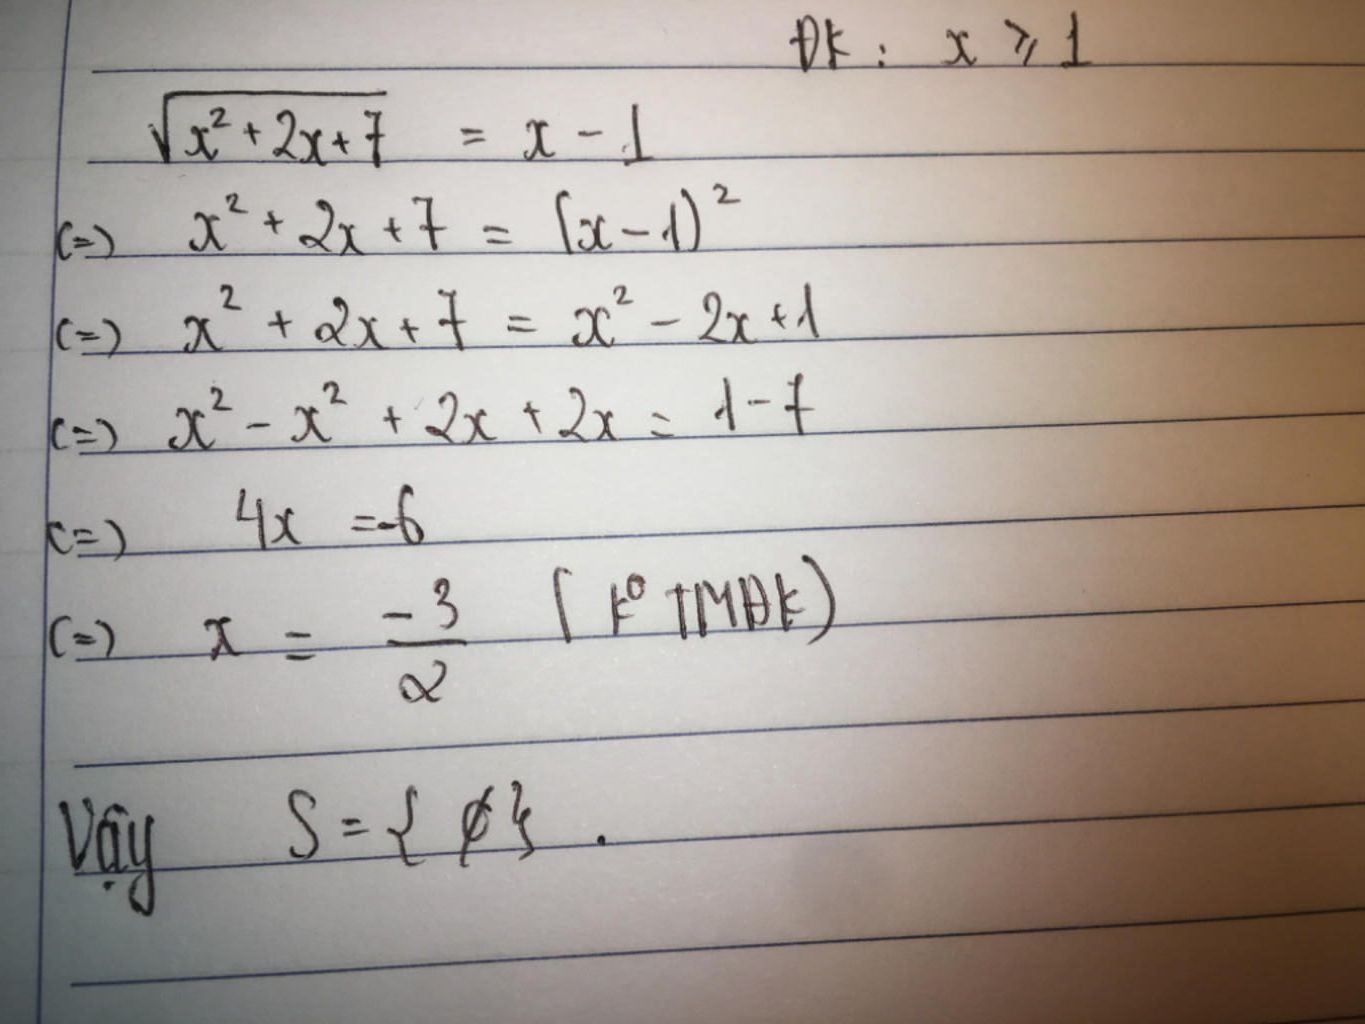 ĐK : x ⩾ 1
√(x² + 2x + 7) = x - 1
(=) x² + 2x + 7 = (x - 1)²
(=) x² + 2x + 7 = x² - 2x + 1
(=) x² - x² + 2x + 2x = 1 - 7
(=) 4x = -6
(=) x = -3/2 ( k⁰ TMĐK)
Vậy S = { ∅ } .